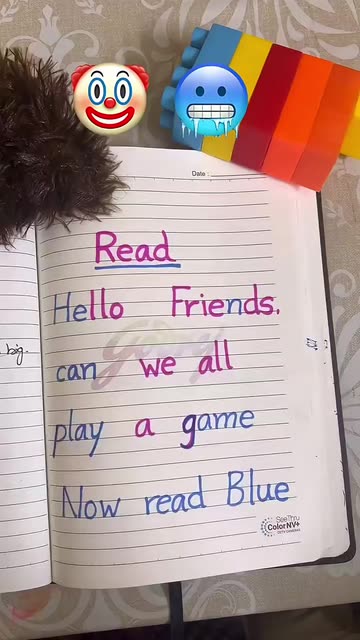 Date :
Read
Hello Friends.
can we all
play a game
Now read Blue
big.
SeeThru
ColorNV+